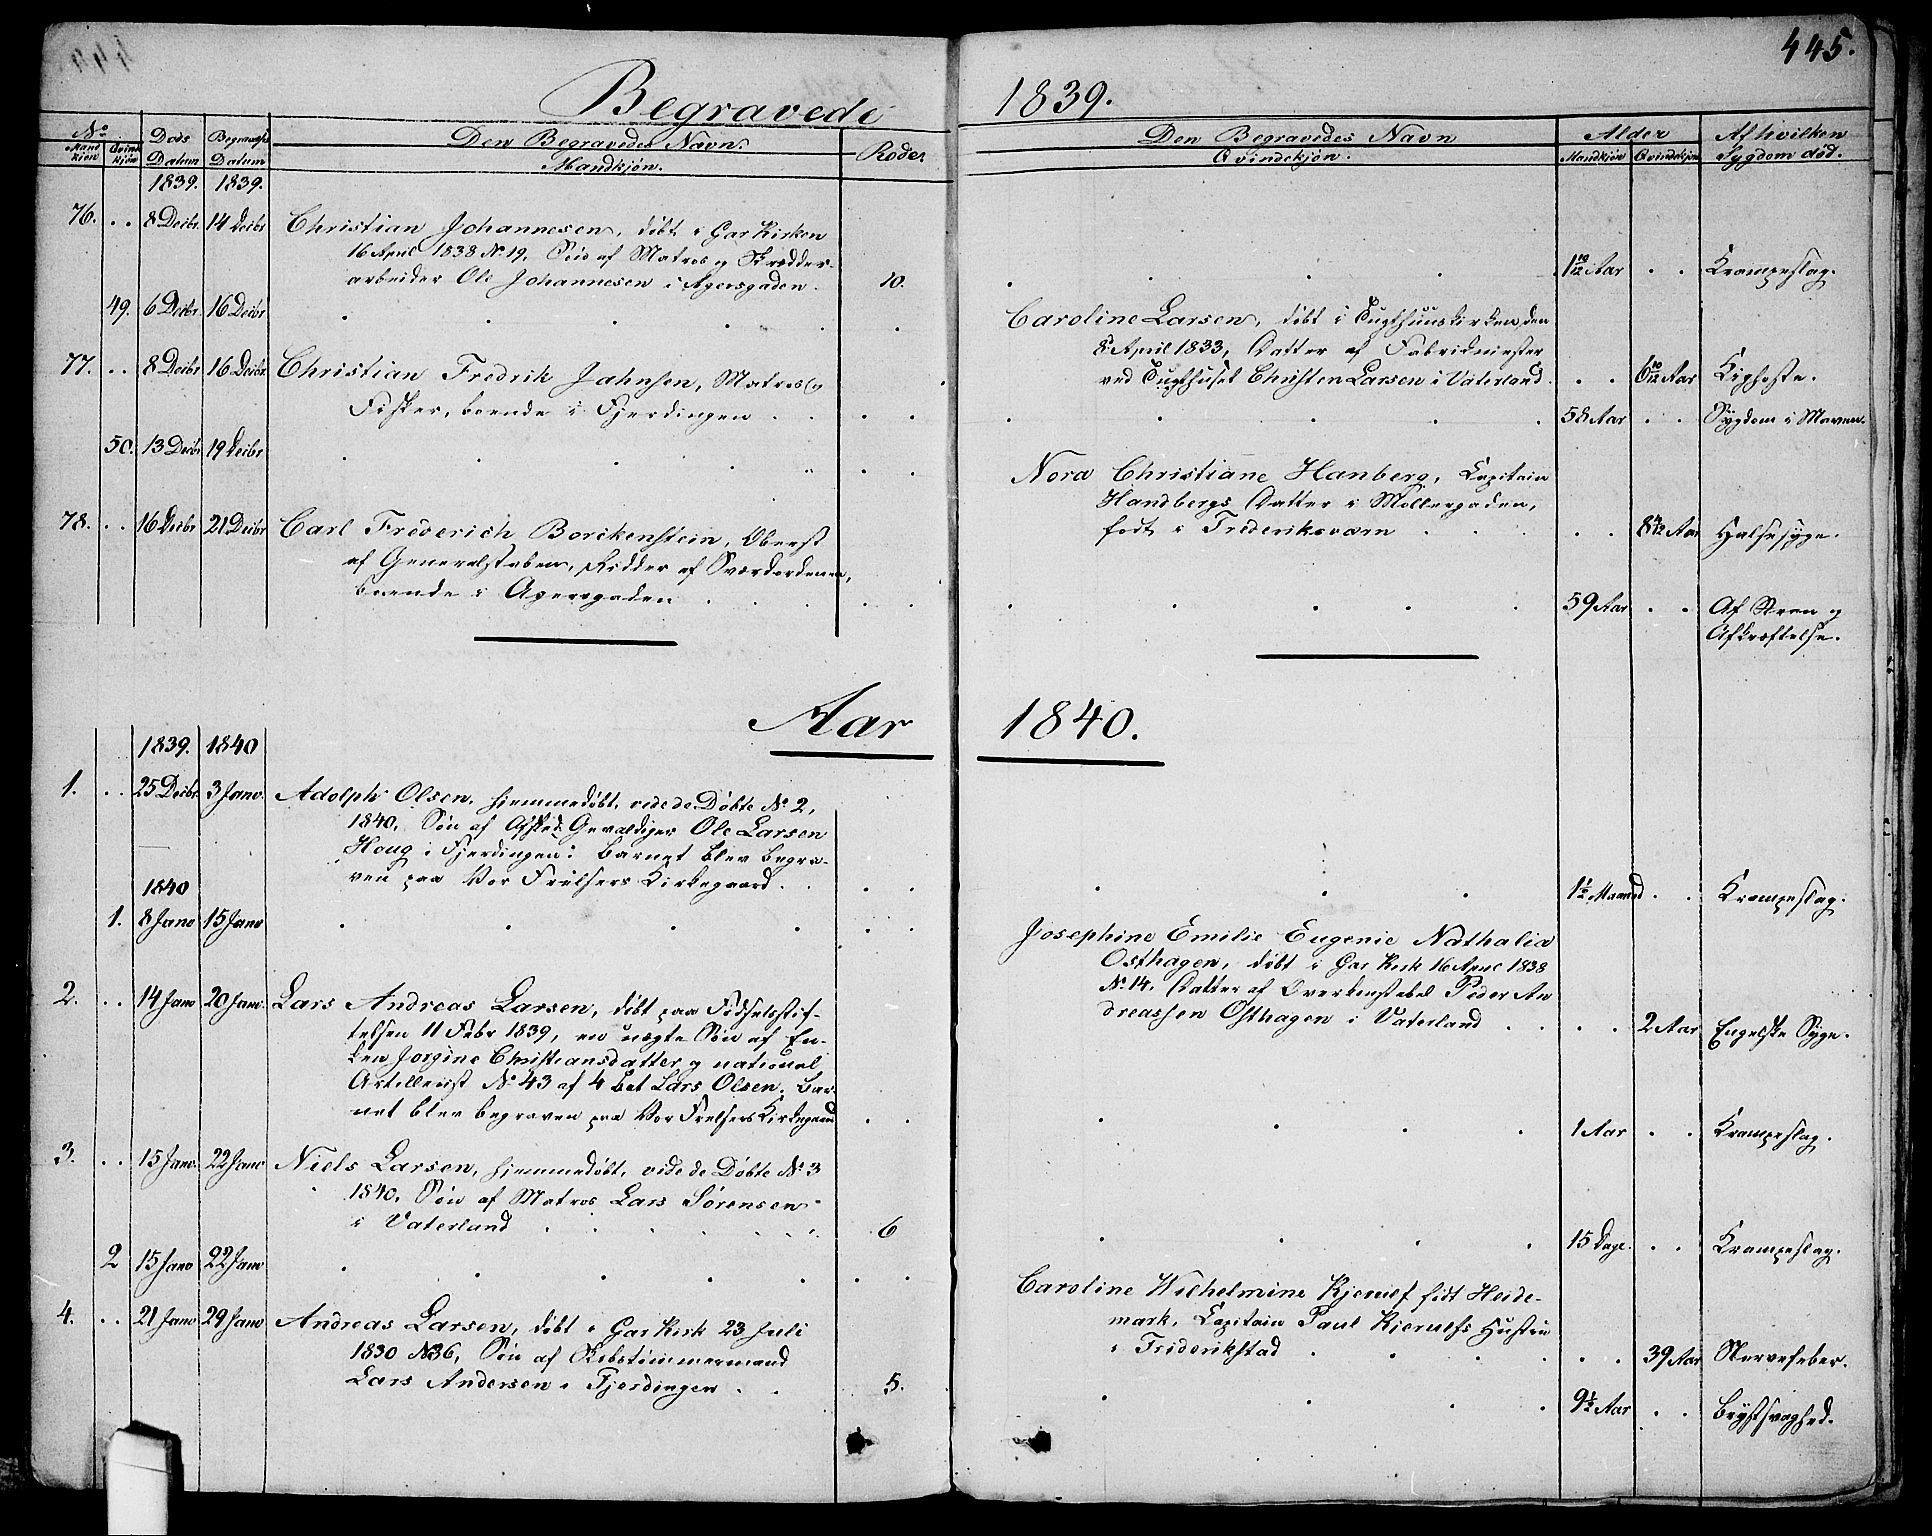 445.
Begravede 1839.
No
Mand kiön
Qvind kjön
Döds Datum
Begravels Datum
Den Begravedes Navn.
Mandkjön.
Roder
Den Begravedes Navn
Qvindekjön.
Alder
Mandkjön
Qvindekjön
Af hvilken
Sygdom död.
1839. 1839.
76. 8 Decbr 14 Decbr Christian Johannesen, döbt i Gar Kirken
16 April 1838 No 19, Sön af Matros og Skrædder-
arbeider Ole Johannesen i Agersgaden. 10.
1 10/12 Aar Krampeslag.
49. 6 Decbr 16 Decbr
Caroline Larsen, döbt i Tugthuuskirken den
8 April 1833, Datter af
ved Tugthuset Christen Larsen i Vaterland 6 10/12 Aar Kighoste.
77. 8 Decbr 16 Decbr Christian Fredrik Jahnsen, Matros og
Fisker, boende i Fjerdingen
58 Aar Sygdom i Maven.
50. 13 Decbr 19 Decbr
Nora Christiane Hanberg, Capitain
Handbergs Datter i Möllergaden,
födt i Frederiksværn Aar Halsesyge.
78. 16 Decbr 21 Decbr Carl Frederich Borckenstein, Oberst
af Generalstaben, Ridder af Sværdordenen,
boende i Agersgaden
59 Aar Af Steen og
Afkræftelse.
Aar 1840.
1839. 1840
1. 25 Decbr 3 Janv. Adolph Olsen, hjemmedöbt, vide de Döbte No 2,
1840, Sön af Afsked Gevaldiger Ole Larsen
Houg i Fjerdingen: Barnet blev begra-
ven paa Vor Frelsers Kirkegaard.
1½ Maaned Krampeslag.
1840
1. 8 Janv 15 Janv
Josephine Emilie Eugenie Nathalia
Osthagen, döbt i Gar Kirk 16 April 1838
No 14. Datter af Overkonstabel Peder An
dreassen Osthagen i Vaterland 2 Aar Engelske Syge.
2. 14 Janv 20 Janv. Lars Andreas Larsen, döbt paa Födselsstif-
telsen 11 Febr 1839, en uægte Sön af En-
ken Jorgine Christiansdatter og national
Artillerist No 43 af 4 Bat Lars Olsen. Bar-
net blev begraven paa Vor Frelsers Kirkegaard
1 Aar Krampeslag.
3. 15 Janv. 22 Janv Niels Larsen, hjemmedöbt, vide de Döbte No 3
1840, Sön af Matros Lars Sörensen
i Vaterland 6
15 Dage. Krampeslag.
2 15 Janv 22 Janv
Caroline Wilhelmine Kjerulf födt Heide-
mark, Capitain Paul Kierulfs Hustru
i Friderikstad 39 Aar Nervefeber.
4. 21 Janv 29 Janv Andreas Larsen, döbt i Gar Kirk 23 Juli
1830 No 36, Sön af
Lars Andersen i Fjerdingen 5.
9½ Aar Brystsvaghed.